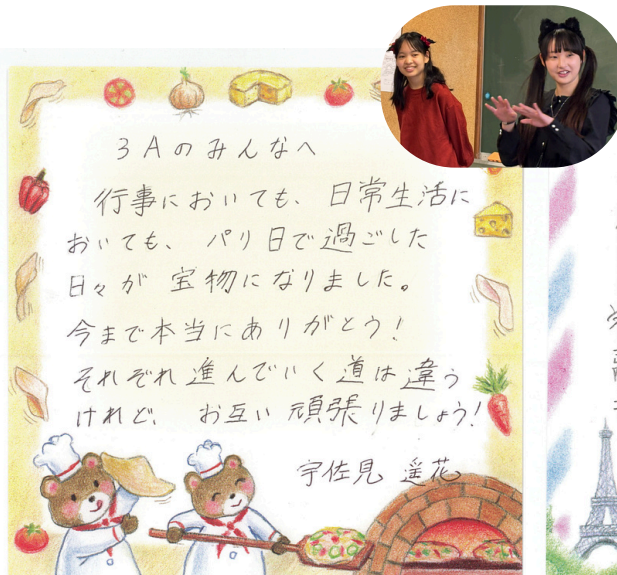 3Aのみんなへ
行事においても、日常生活に
おいても、パリ日で過ごした
日々が宝物になりました。
今まで本当にありがとう!
それぞれ進んでいく道は違う
けれど、お互い頑張りましょう!
宇佐見 遥花